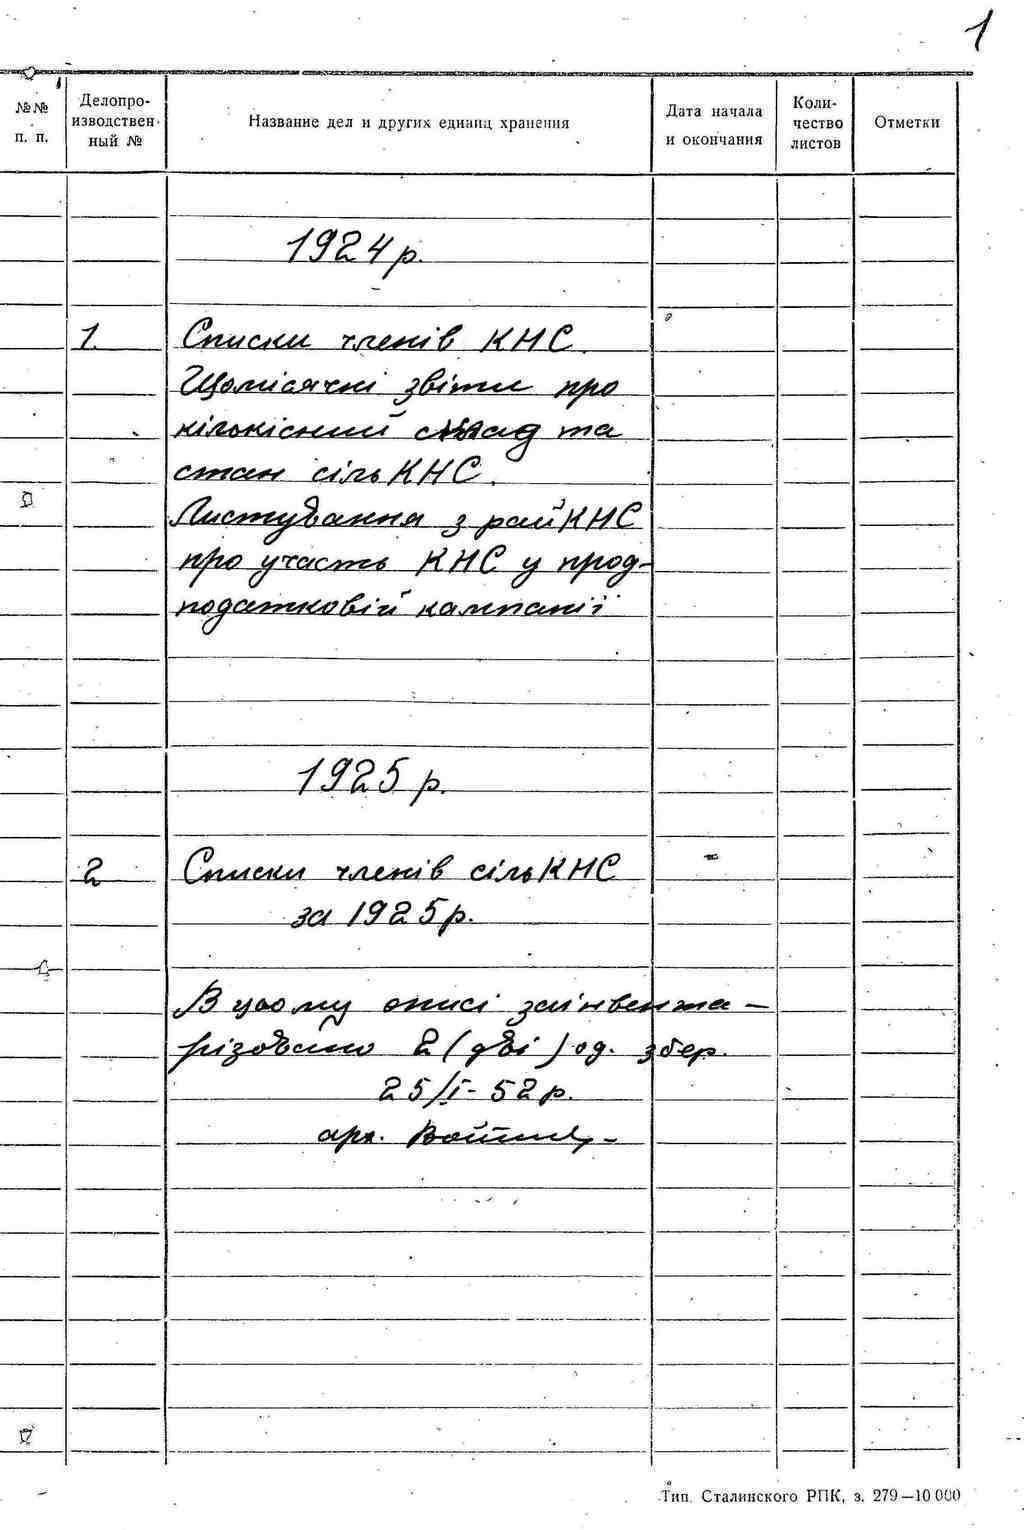 1
№№ п. п.
Делопро-
изводствен-
ный №
Название дел и других единиц хранения
Дата начала
и окончания
Коли-
чество
листов
Отметки
1924 р.
1. Списки членів КНС.
Щомісячні звіти про
кількісний склад та
стан сільКНС.
Листування з райКНС
про участь КНС у прод-
податковій кампанії
1925 р.
2 Списки членів сільКНС
за 1925 р.
В цьому описі заінвента-
різовано 2 (дві) од. збер.
25/I-52 р.
арх.
Тип. Сталинского РПК, з. 279—10 000